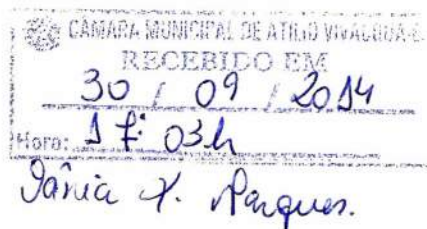 CÂMARA MUNICIPAL DE ATILIO VIVACQUA-E
RECEBIDO EM
30 / 09 / 2014
Hora: 17:03h
Vânia X. Marques.